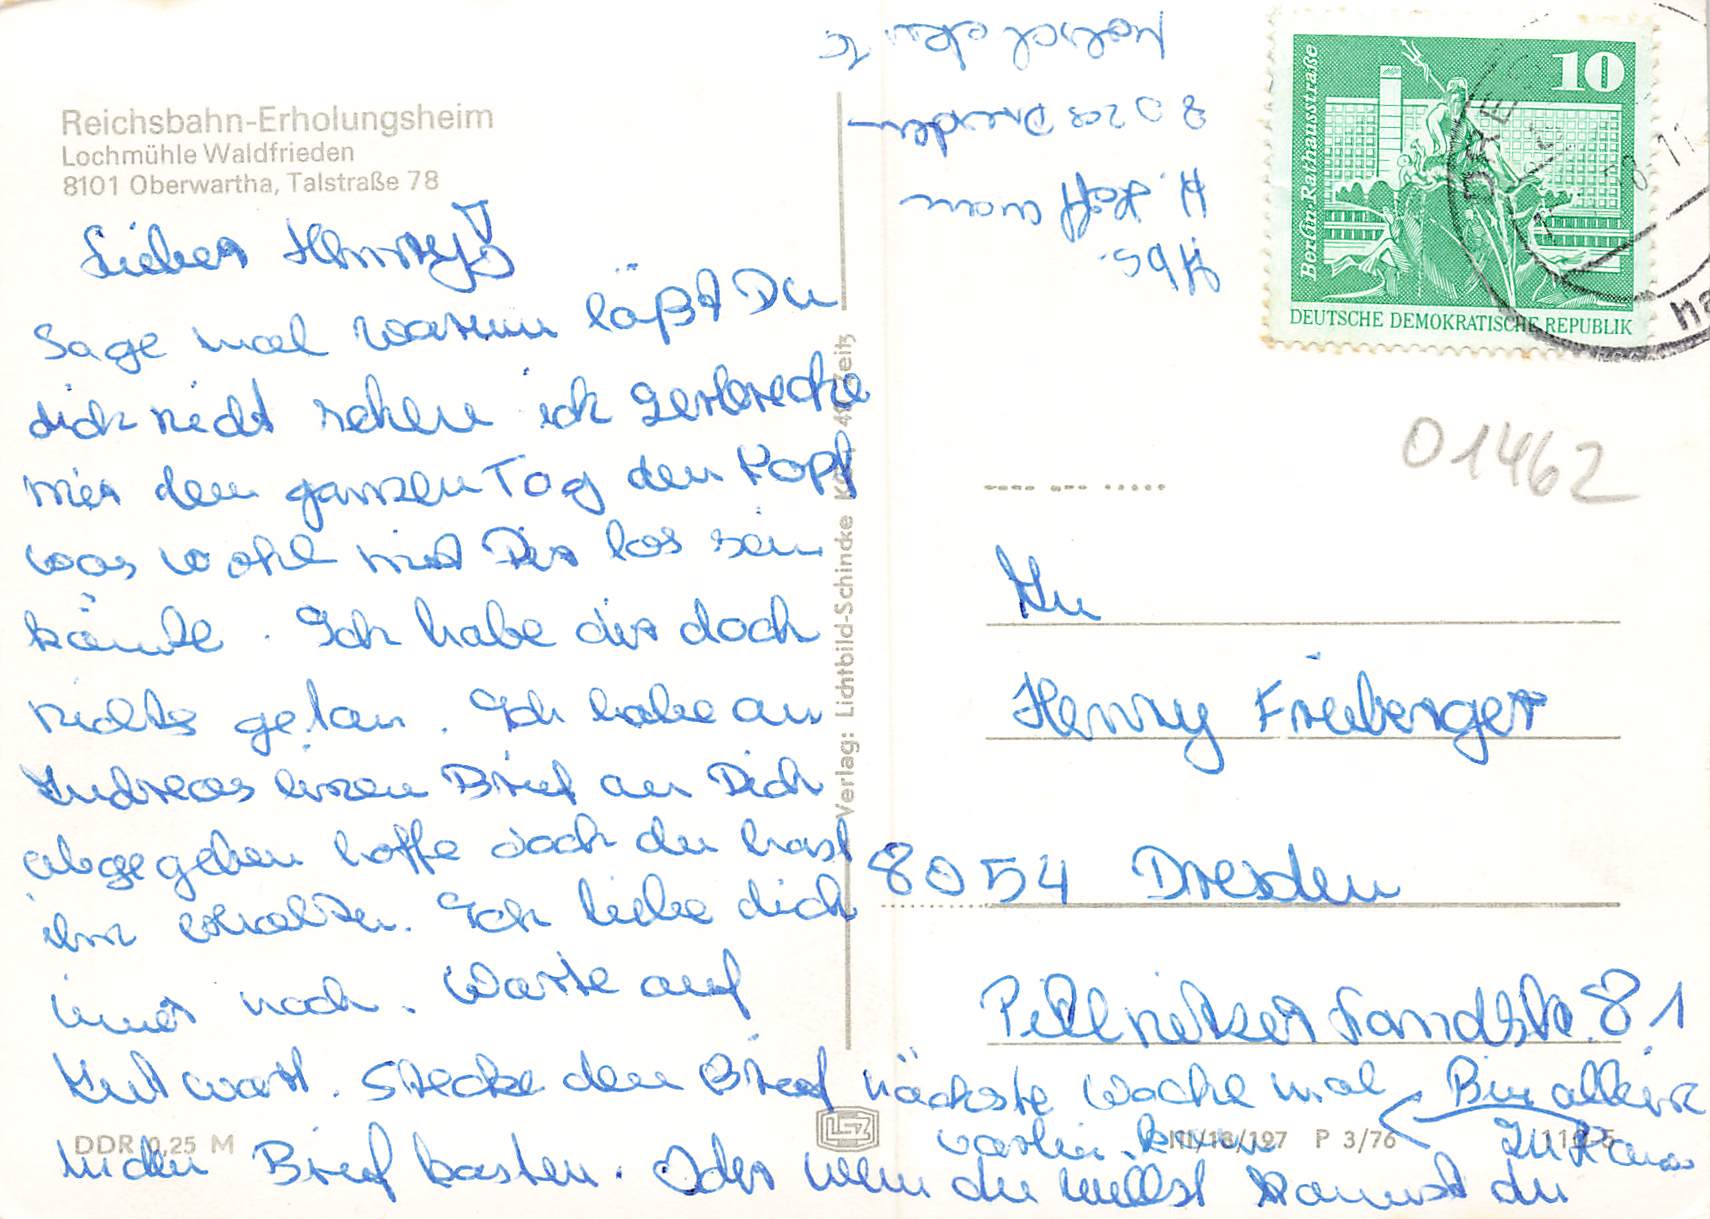 Reichsbahn-Erholungsheim
Lochmühle Waldfrieden
8101 Oberwartha, Talstraße 78
Lieber Henry!
Sage mal warum läßt Du
dich nicht sehen ich zerbreche
mir den ganzen Tag den Kopf
was wohl mit Dir los sein
könnte. Ich habe dir doch
nichts getan. Ich habe an
Andreas einen Brief an Dich
abgegeben hoffe doch du hast
ihn erhalten. Ich liebe dich
immer noch. Warte auf
Antwort. Stecke den Brief
in den Briefkasten. Oder wenn du willst kannst du
nächste Woche mal
vorbei kommen
Bin allein
zu Haus
DDR 0,25 M
III/18/197 P 3/76
Verlag: Lichtbild-Schincke Zeitz
Abs.
A. Hoffmann
80 Dresden
Berlin-Rathausstraße
10
DEUTSCHE DEMOKRATISCHE REPUBLIK
01462
An
Henry Frieberger
8054 Dresden
Pillnitzer Landstr. 81